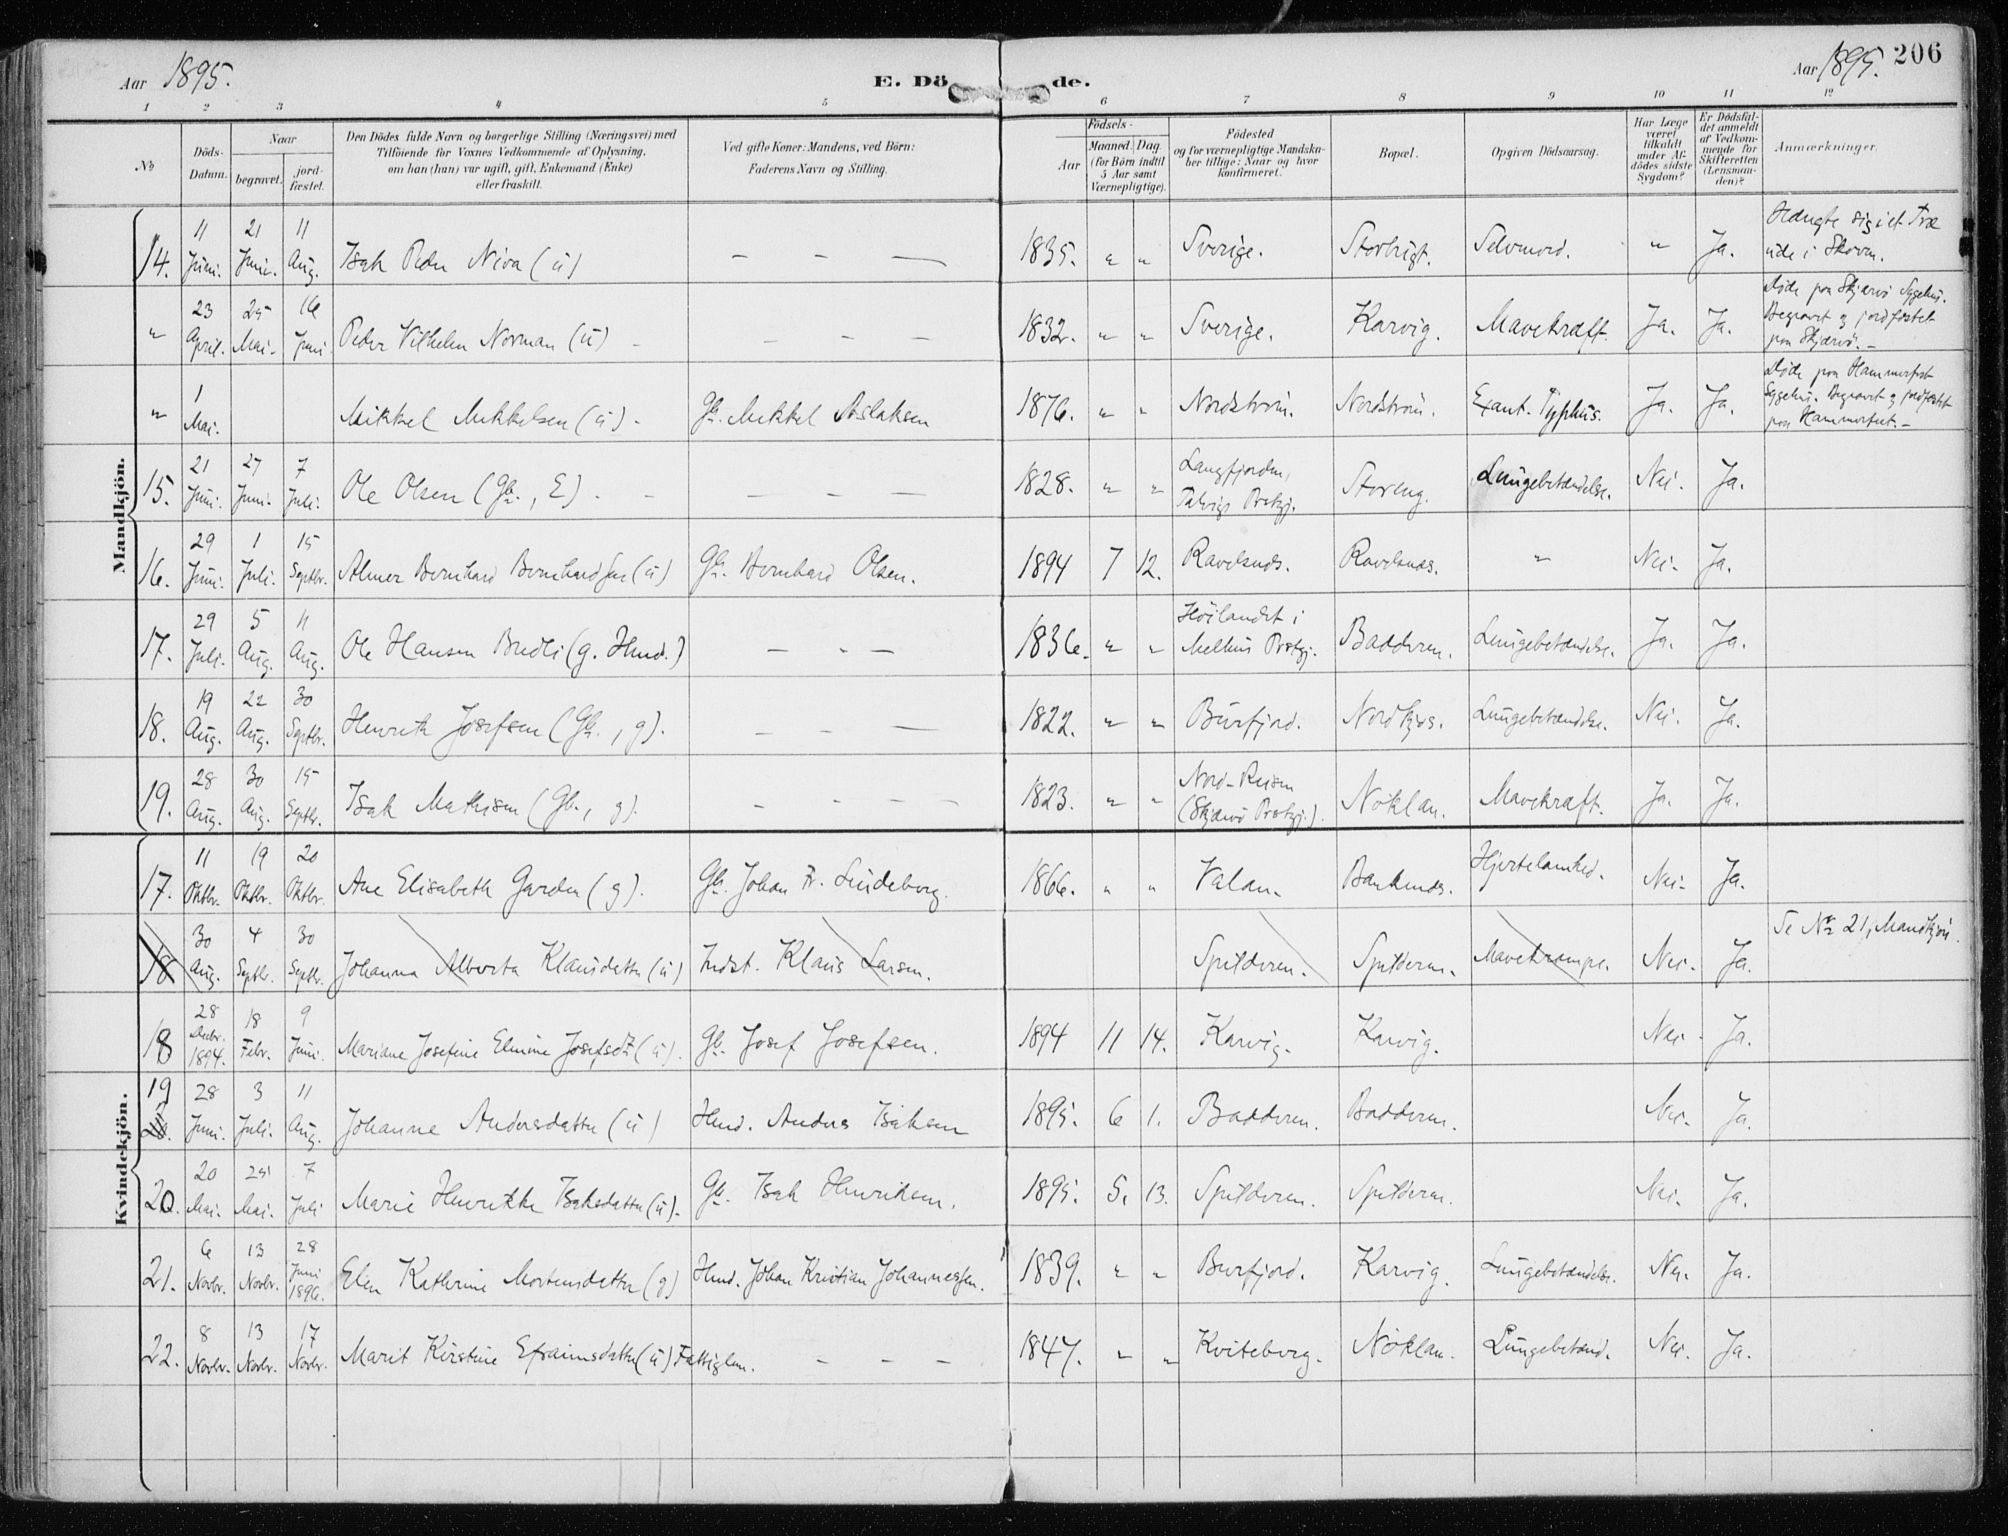 Aar 1895.
E. Dö de.
Aar 1895. 206
1 2 3 4 5 6 7 8 9 10 11 12
No
Döds-
Datum.
Naar
begravet.
jord-
fæstet.
Den Dödes fulde Navn og borgerlige Stilling (Næringsvei) med
Tilföiende for Voxnes Vedkommende af Oplysning,
om han (hun) var ugift, gift, Enkemand (Enke)
eller fraskilt.
Ved gifte Koner: Mandens, ved Börn:
Faderens Navn og Stilling.
Födsels-
Aar
Maaned. Dag.
(for Börn indtil
5 Aar samt
Værnepligtige).
Födested
og for værnepligtige Mandska-
ber tillige: Naar og hvor
konfirmeret.
Bopæl.
Opgiven Dödsaarsag.
Har Læge
været
tilkaldt
under Af-
dödes sidste
Sygdom?
Er Dödsfal-
det anmeldt
af Vedkom-
mende for
Skifteretten
(Lensman-
den)?
Anmærkninger.
Mandkjön.
14. 11 Juni. 21 Juni. 11 Aug. Isak Peder Niva (u) — — — 1835. " " Sverige. Storbugt. Selvmord. " Ja. Hængte sig i et Træ
ude i Skoven.
" 23 April. 25 Mai. 16 Juni Peder Vilhelm Norman (u) — — — 1832. " " Sverige. Karvig. Mavekræft. Ja. Ja. Døde paa Skjervø Sygehus.
Begravet og jordfæstet
paa Skjærvø. —
" 1 Mai. Mikkel Mikkelsen (u) — Gb. Mikkel Aslaksen 1876. " " Nordstrøm. Nordstrøm. Exant. Typhus. Ja. Ja. Døde paa Hammerfest
Sygehus. Begravet og jordfæstet
paa Hammerfest. —
15. 21 Juni. 27 Juni. 7 Juli. Ole Olsen (Gb., E) — — — 1828. " " Langfjorden,
Talvigs Prstgj. Storeng. Lungebetændelse. Nei. Ja.
16. 29 Juni. 1 Juli. 15 Septbr. Almer Bernhard Bernhardsen (u) Gb. Bernhard Olsen. 1894 7 12. Ravelsnæs. Ravelsnæs. " Nei. Ja.
17. 29 Juli. 5 Aug. 11 Aug. Ole Hansen Bredli (g. Hmd.) — — — 1836. " " Høilandet i
Melhus Prstgj. Badderen. Lungebetændelse. Ja. Ja.
18. 19 Aug. 22 Aug. 30 Septbr. Henrik Josefsen (Gb., g). — — — 1822. " " Burfjord. Nordkjos. Lungebetændelse. Nei. Ja.
19. 28 Aug. 30 Aug. 15 Septbr. Isak Mathisen (Gb., g). — — — 1823. " " Nord-Reisen
(Skjærvø Prstgj.). Nöklan. Mavekræft. Ja. Ja.
Kvindekjön.
17. 11 Oktbr. 19 Oktbr. 20 Oktbr. Ane Elisabeth Garden (g). Gb. Johan Fr. Lindeborg. 1866. " " Valan. Bankenæs. Hjertelamhed. Nei. Ja.
18 30 Aug. 4 Septbr. 30 Septbr. Johanna Alberta Klausdatter (u) Indst. Klaus Larsen. Spilderen. Spilderen. Mavekrampe. Nei. Ja. Se No 21, Mandkjön.
18 28 Decbr. 1894. 18 Febr. 9 Juni. Mariane Josefine Elmine Josefsdtr (u). Gb. Josef Josefsen. 1894 11 14. Karvig. Karvig. Nei. Ja.
19 28 Juni. 3 Juli. 11 Aug. Johanne Andersdatter (u) Hmd. Anders Isaksen 1895. 6 1. Badderen. Badderen. Nei. Ja.
20. 20 Mai. 25 Mai. 7 Juli Marie Henrikke Isaksdatter (u). Gb. Isak Henriksen. 1895. 5. 13. Spilderen. Spilderen. Nei. Ja.
21. 6 Novbr. 13 Novbr. 28 Juni 1896. Elen Kathrine Mortensdatter (g) Hmd. Johan Kristian Johannessen. 1839. " " Burfjord. Karvig. Lungebetændelse. Nei. Ja.
22. 8 Novbr. 13 Novbr. 17 Novbr. Marit Kirstine Efraimsdatter (u) Fattiglem. — — — 1847. " " Kviteberg. Nöklan. Lungebetænd. Nei. Ja.